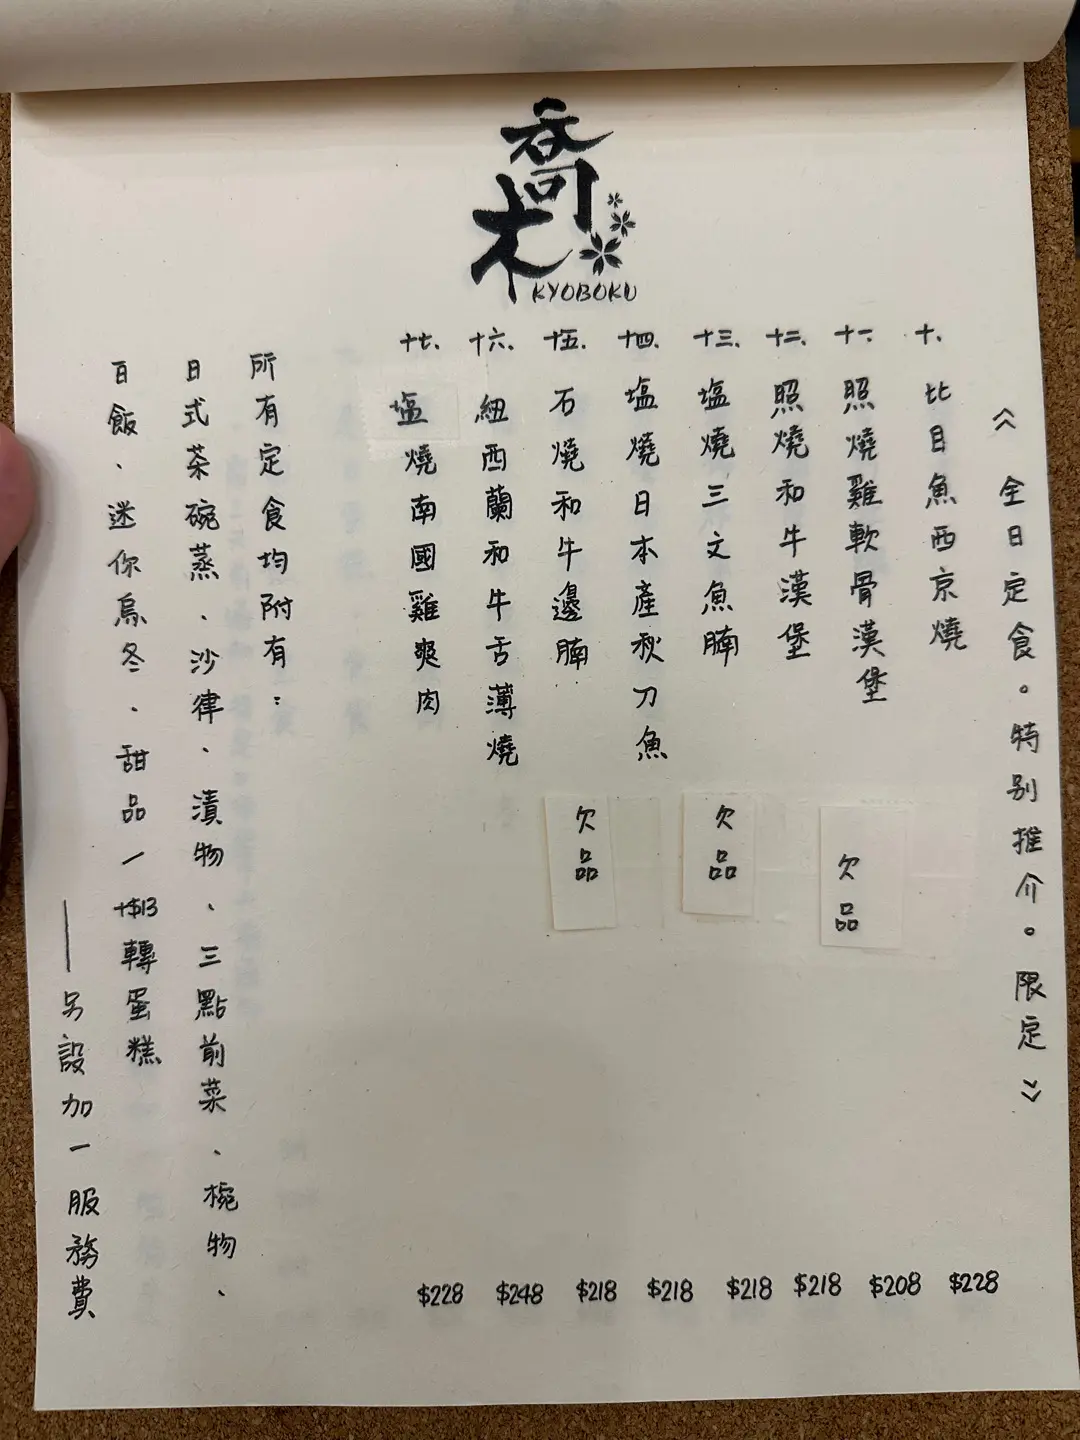 喬木
KYOBOKU
《全日定食。特別推介。限定》
十、比目魚西京燒 $228
十一、照燒雞軟骨漢堡 欠品 $208
十二、照燒和牛漢堡 $218
十三、塩燒三文魚腩 欠品 $218
十四、塩燒日本產秋刀魚 $218
十五、石燒和牛邊腩 欠品 $218
十六、紐西蘭和牛舌薄燒 $248
十七、塩燒南國雞爽肉 $228
所有定食均附有：
日式茶碗蒸、沙律、漬物、三點前菜、椀物、
白飯、迷你烏冬、甜品/+$13轉蛋糕
——另設加一服務費